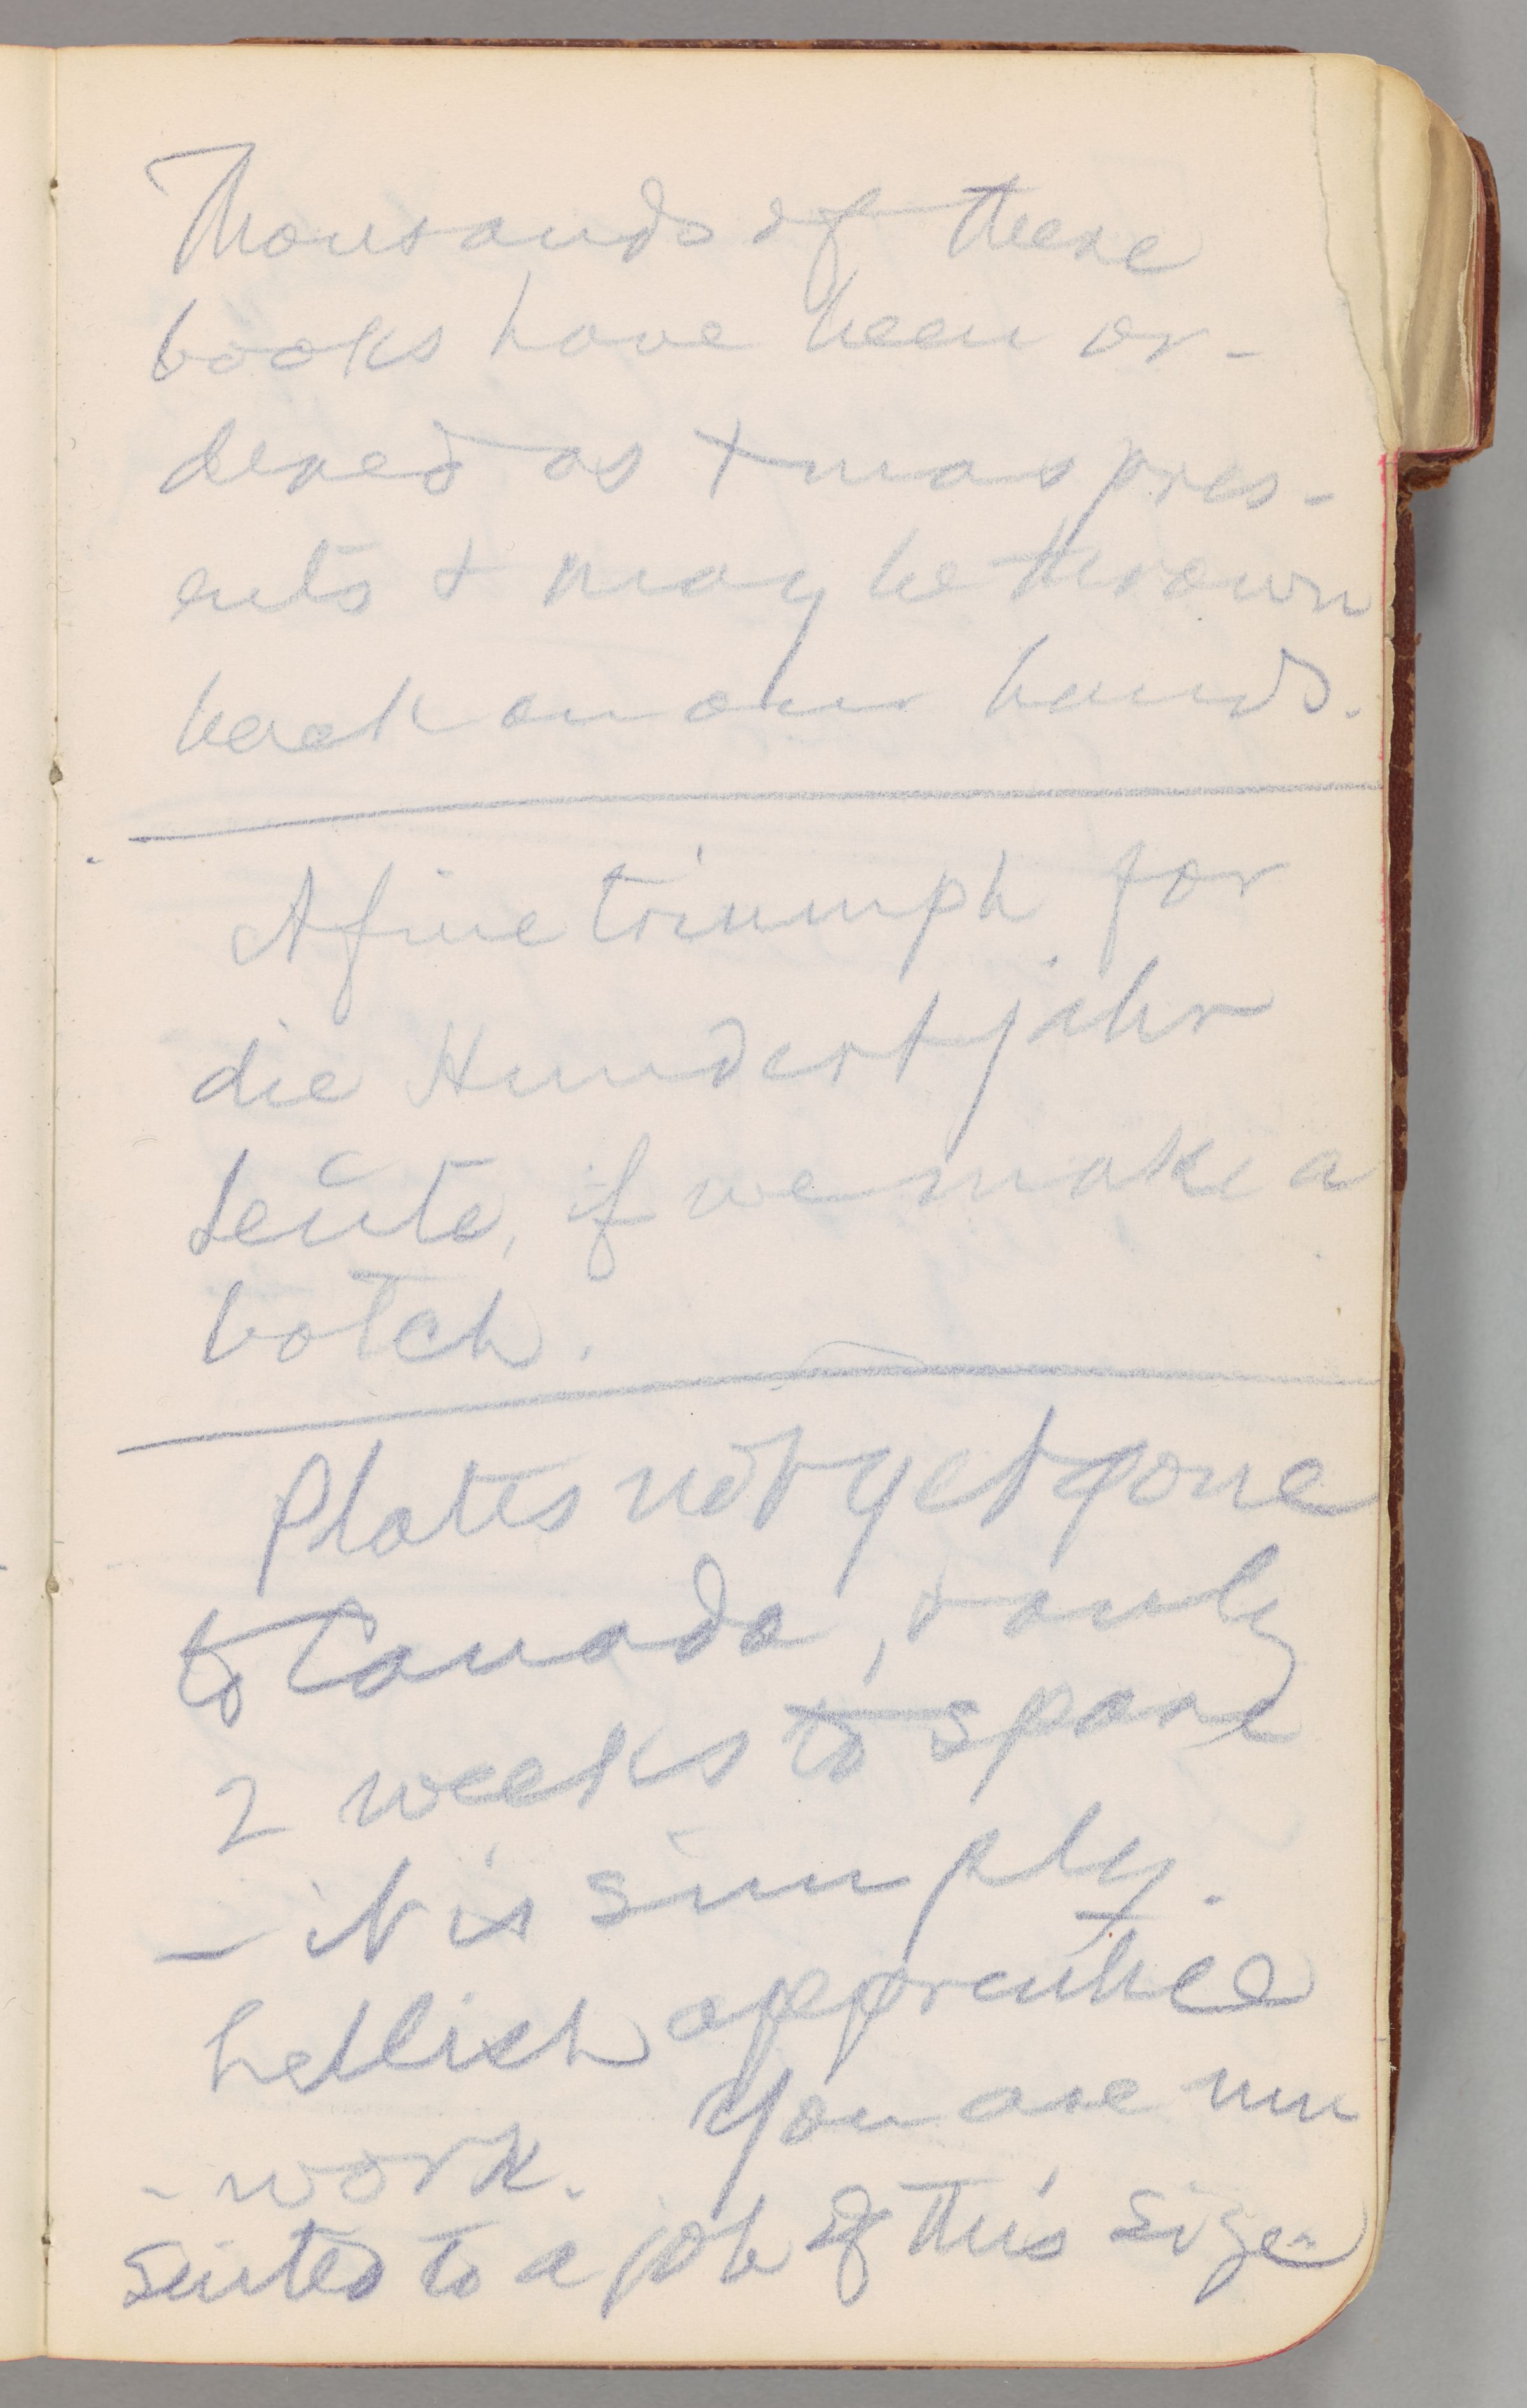 Thousands of these
books have been or-
dered as Xmas pres-
ents & may be thrown
back on our hands.
A fine triumph for
die Hundertjahr
Leute, if we make a
botch.
Plates not yet gone
to Canada, & only
2 weeks to spare
— it is simply
hellish apprentice
- work. You are un
suited to a job of this size